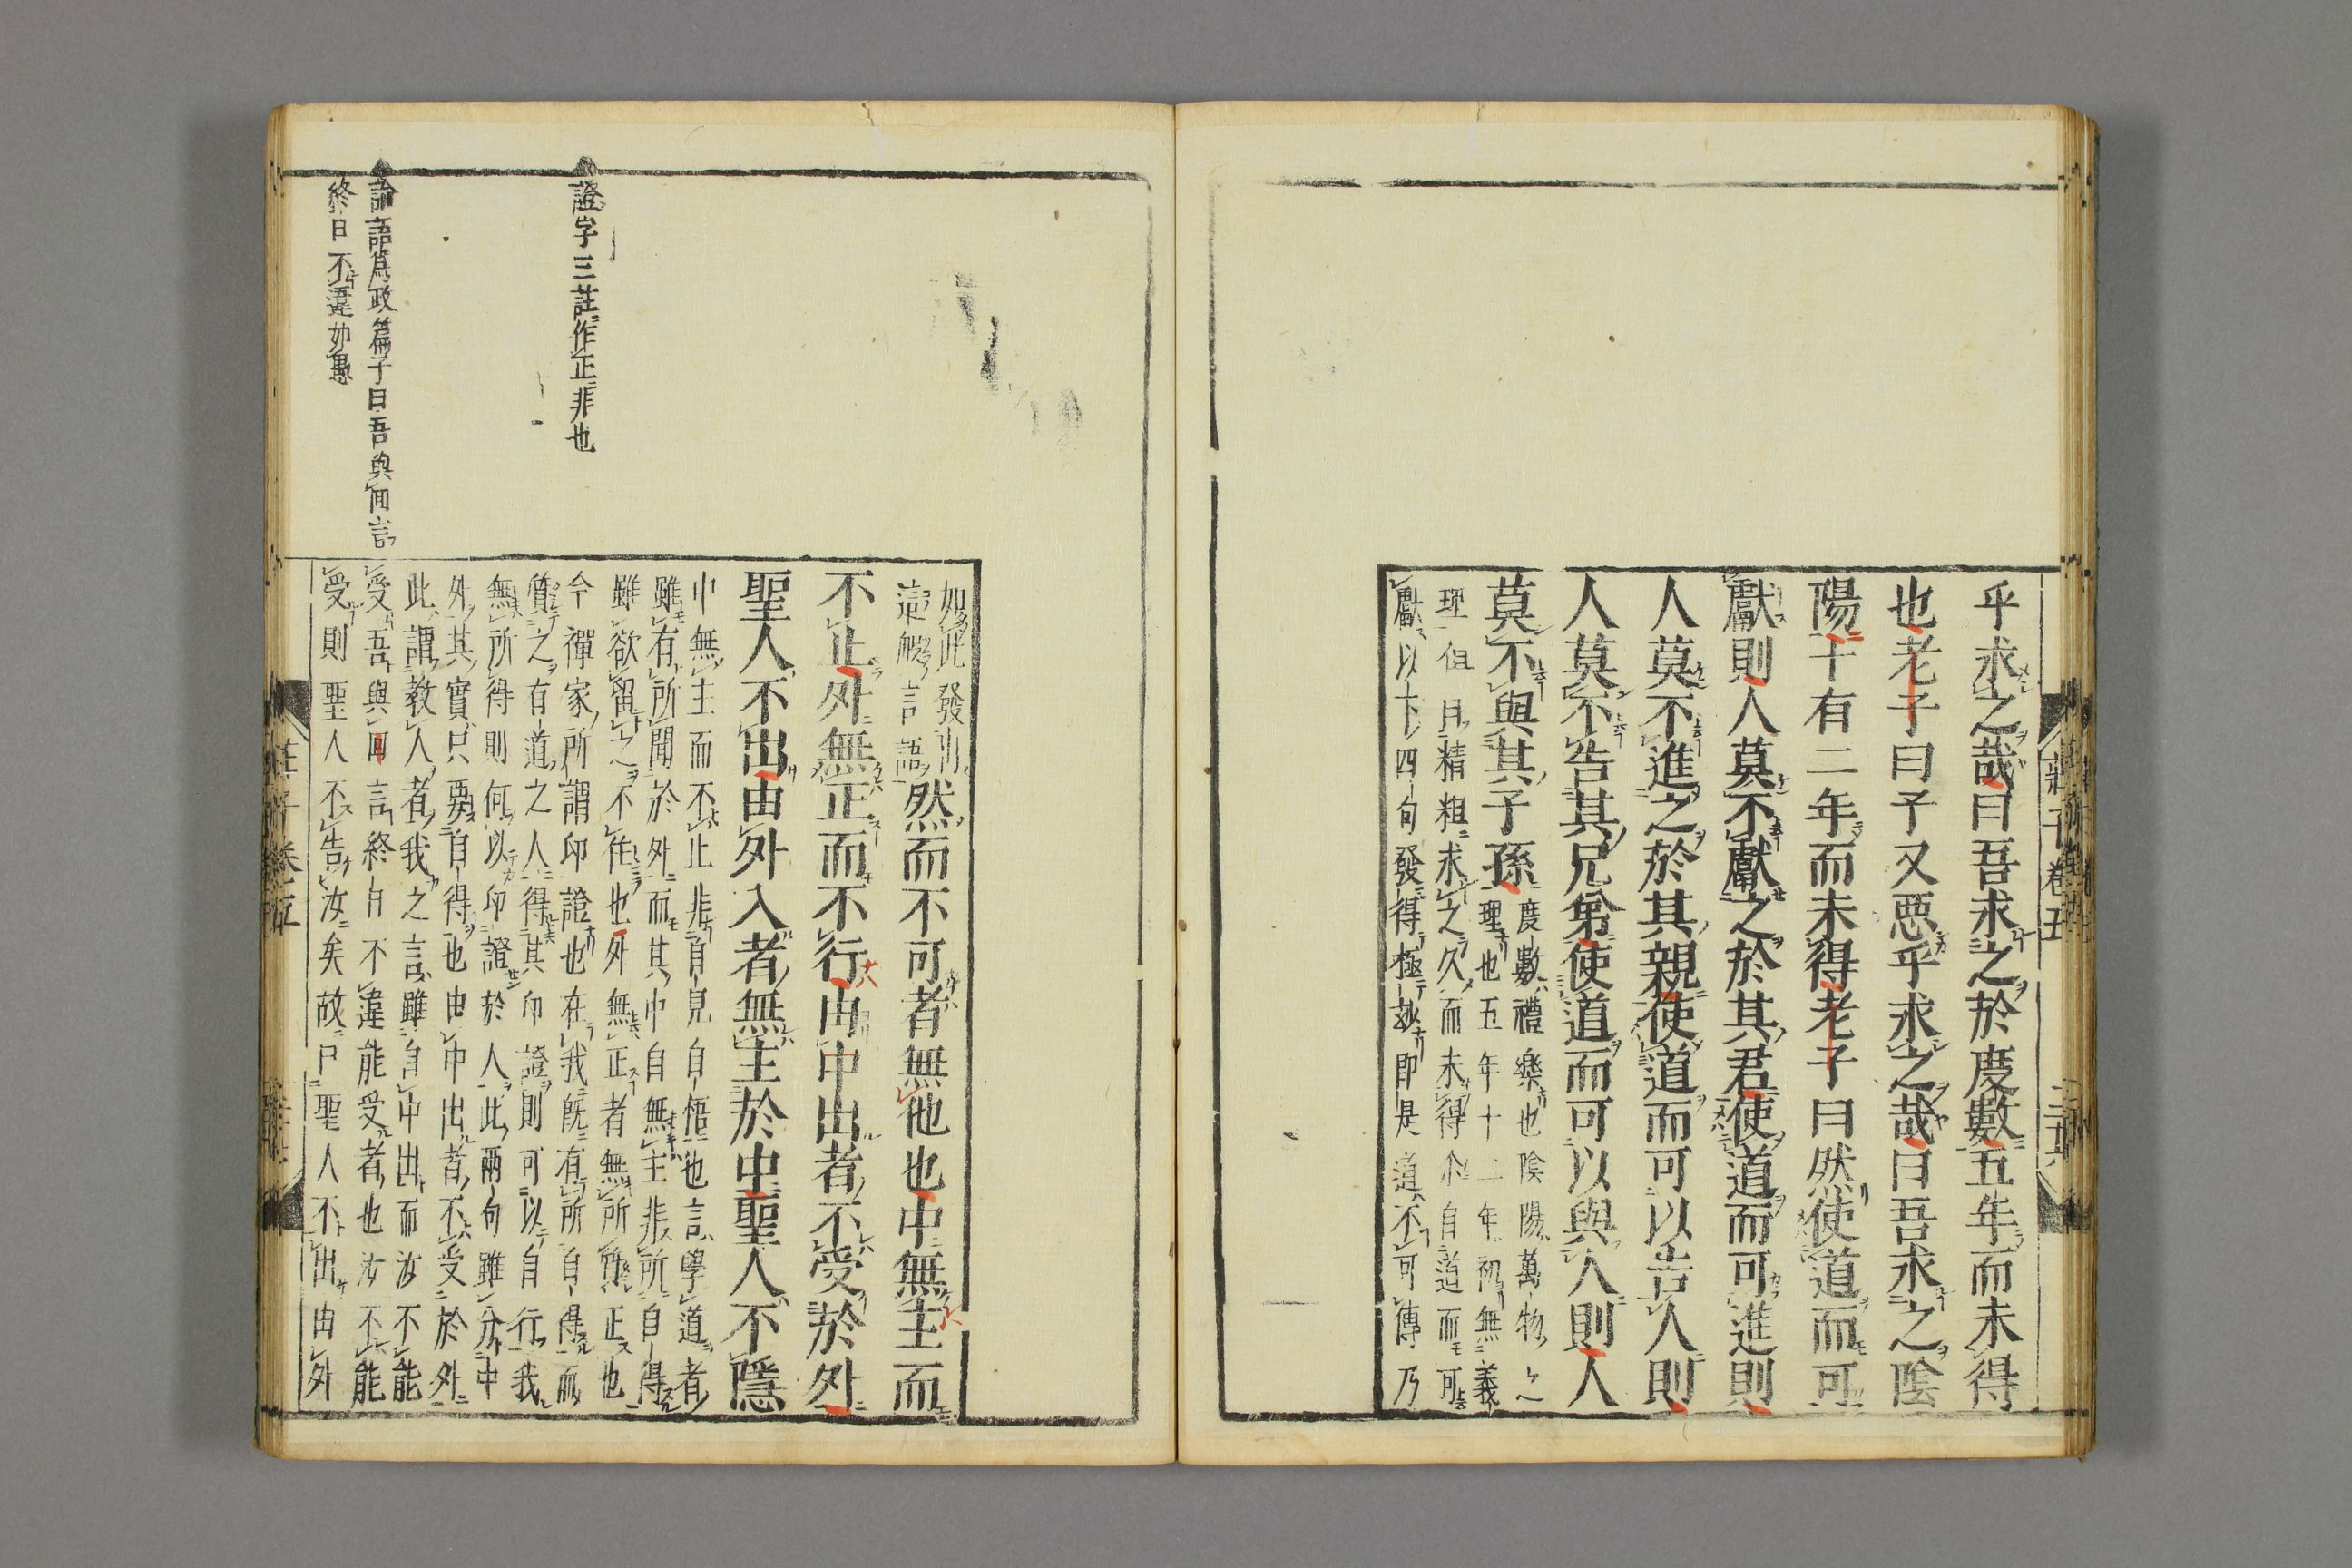 乎求之哉曰吾求之於度數五年而未得
也老子曰子又惡乎求之哉曰吾求之陰
陽十有二年而未得老子曰然使道而可
獻則人莫不獻之於其君使道而可進則
人莫不進之於其親使道而可以告人則
人莫不告其兄弟使道而可以與人則人
莫不與其子孫
度數禮樂也陰陽萬物之
理也五年十二年初無義
理但且精粗求之久而未得尒自道而可
獻以下四句發得極妙即是道不可傳乃
如此發出
這般言語
然而不可者無他也中無主而
不止外無正而不行由中出者不受於外
聖人不出由外入者無主於中聖人不隱
中無主而不止非自見自悟也言學道者
雖有所聞於外而其中自無主非所自得
雖欲留之不住也外無正者無所質正也
今禪家所謂印證也在我既有所自得而
質之有道之人得其印證則可以自行我
無所得則何以印證於人此兩句雖分中
外其實只要自得也由中出者不受於外
此謂教人者我之言雖自中出而汝不能
受吾與回言終日不違能受者也汝不能
受則聖人不告汝矣故曰聖人不出由外
證字三註作正非也
論語爲政篇子曰吾與回言
終日不違如愚
莊子卷五